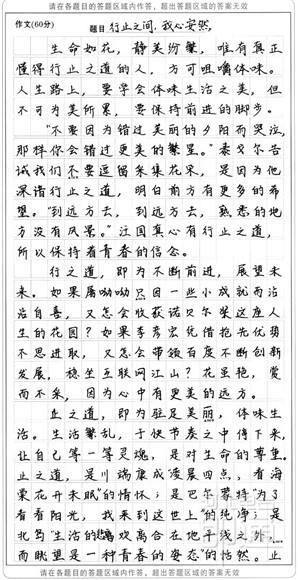 请在各题目的答题区域内作答，超出答题区域的答案无效
作文(60分)
题目 行止之间，我心安然。
生命如花，静美纷繁，唯有真正
懂得行止之道的人，方可咀嚼体味。
人生路上，要学会体味生活之美，但
不可为美所累，要保持前进的脚步。
“不要因为错过美丽的夕阳而哭泣，
那样你会错过更美的繁星。”泰戈尔告
诫我们不要逗留采集花朵，是因为他
深谙行止之道，明白前方有更多的希
望。“到远方去，到远方去，熟悉的地
方没有风景。”汪国真心有行止之道，
所以保持着青春的信念。
行之道，即为不断前进，展望未
来。如果屠呦呦只因一些小成就而沾
沾自喜，又怎会收获诺贝尔奖这座人
生的花园？如果李彦宏优借抱先优势
不思进取，又怎会带领百度不断创新
发展，稳坐互联网江山？花虽艳，赏
而不采，因为心中有更美的远方。
止之道，即为驻足美丽，体味生
活。生活繁乱，于快节奏之中停下来，
让自己等一等灵魂，是对生命的尊重。
止之道，是川端康成凌晨四点，看海
棠花开未眠”的情怀；是巴尔蒙特“为了
看看阳光，我来到这世上”的纯净；是
北岛“生活的悲欢离合在地平线之外，
而眺望是一种青春的姿态”的怡然。止
请在各题目的答题区域内作答，超出答题区域的答案无效